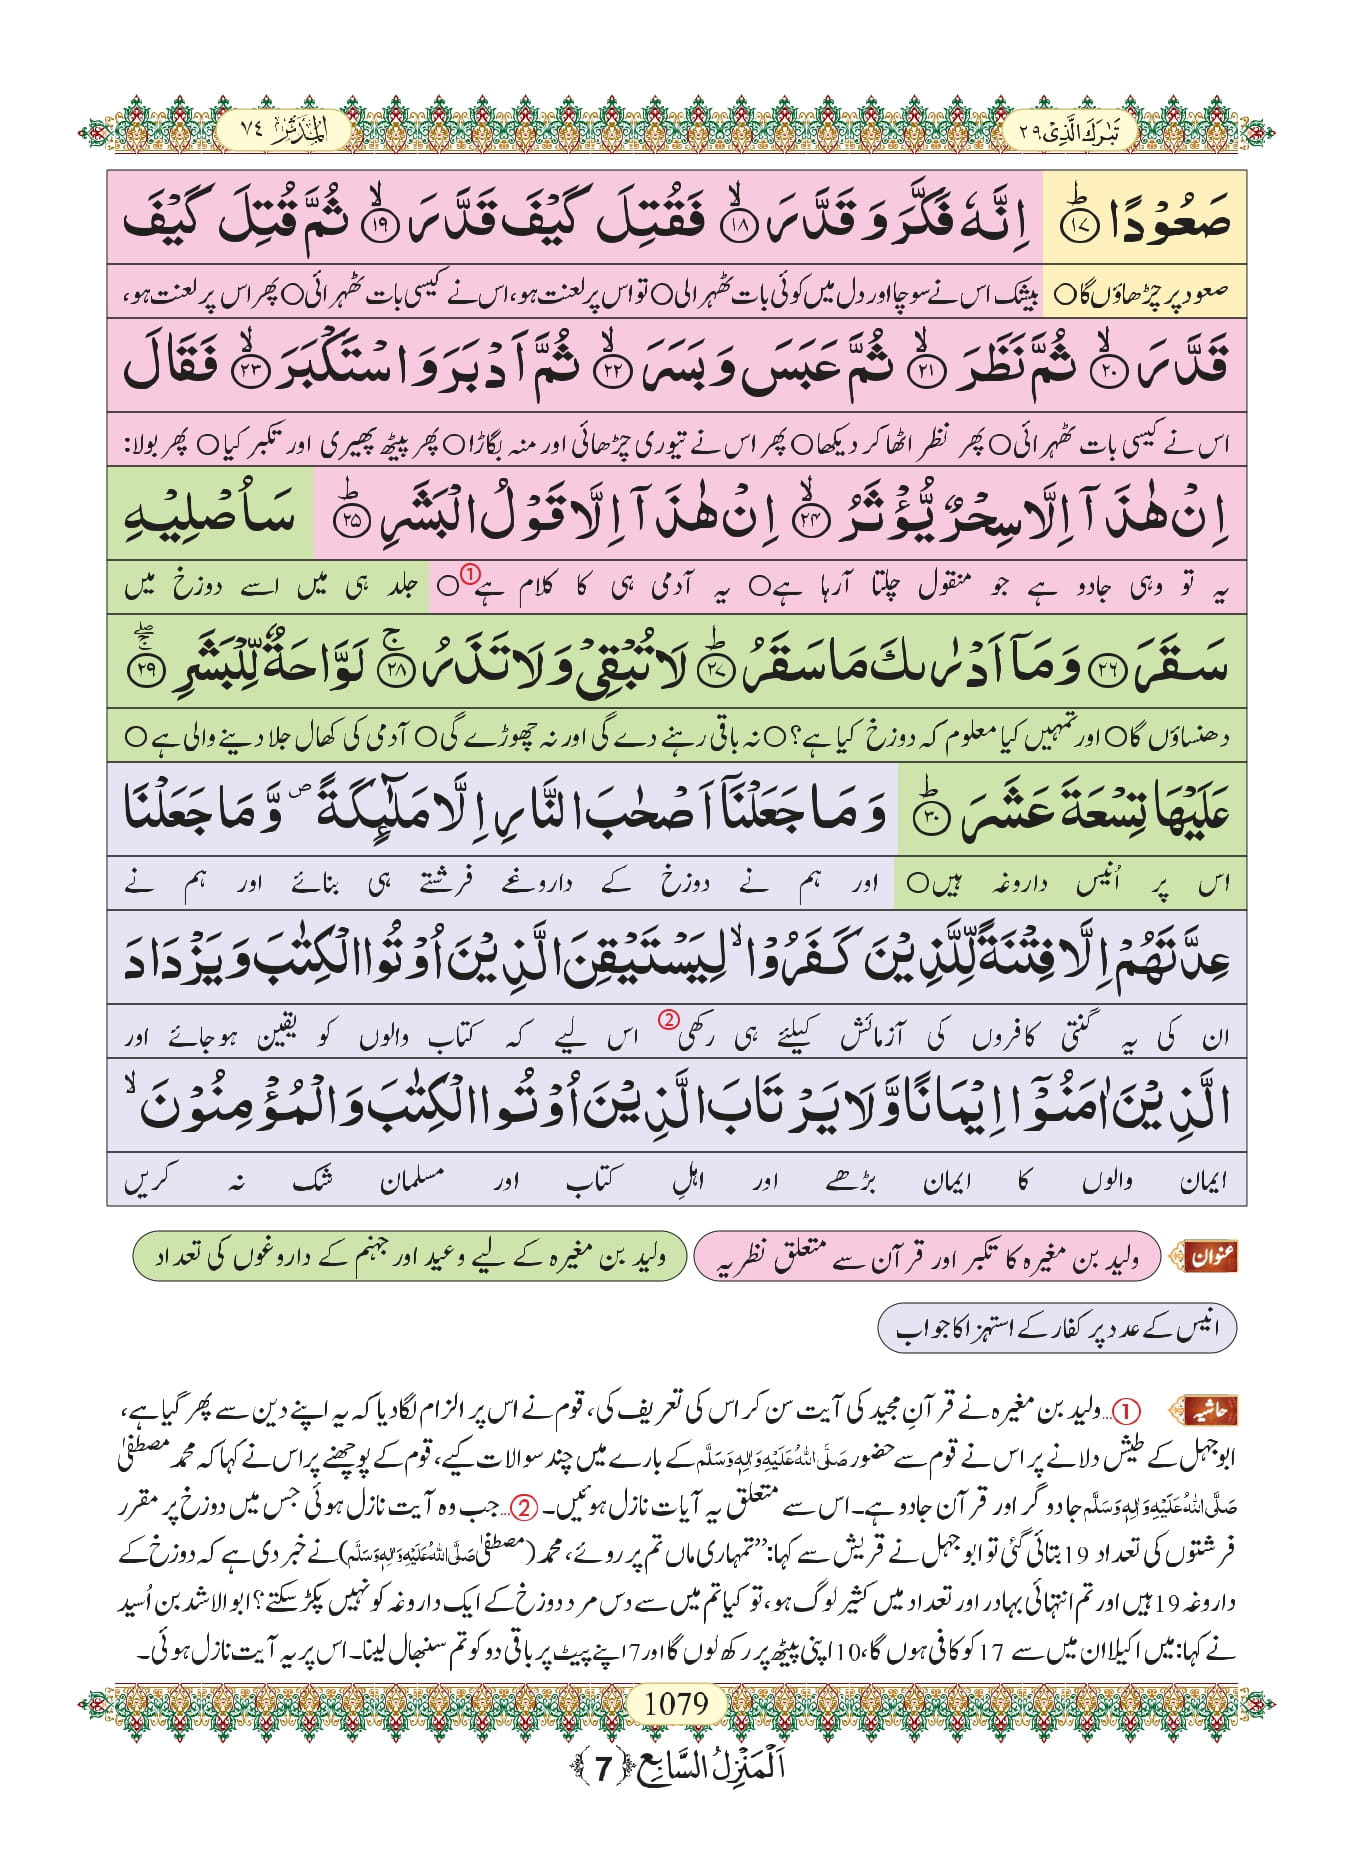 تَبٰرَكَ الَّذِیْ ٢٩
اَلْمُدَّثِّر ٧٤
صَعُوْدًاؕ(١٧) اِنَّهٗ فَكَّرَ وَ قَدَّرَۙ(١٨) فَقُتِلَ كَیْفَ قَدَّرَۙ(١٩) ثُمَّ قُتِلَ كَیْفَ
صعود پر چڑھاؤں گا○ بیشک اس نے سوچا اور دل میں کوئی بات ٹھہرالی○ تو اس پر لعنت ہو، اس نے کیسی بات ٹھہرائی○ پھر اس پر لعنت ہو،
قَدَّرَۙ(٢٠) ثُمَّ نَظَرَۙ(٢١) ثُمَّ عَبَسَ وَ بَسَرَۙ(٢٢) ثُمَّ اَدْبَرَ وَ اسْتَكْبَرَۙ(٢٣) فَقَالَ
اس نے کیسی بات ٹھہرائی○ پھر نظر اٹھا کر دیکھا○ پھر اس نے تیوری چڑھائی اور منہ بگاڑا○ پھر پیٹھ پھیری اور تکبر کیا○ پھر بولا:
اِنْ هٰذَاۤ اِلَّا سِحْرٌ یُّؤْثَرُۙ(٢٤) اِنْ هٰذَاۤ اِلَّا قَوْلُ الْبَشَرِؕ(٢٥) سَاُصْلِیْهِ
یہ تو وہی جادو ہے جو منقول چلتا آرہا ہے○ یہ آدمی ہی کا کلام ہے①○ جلد ہی میں اسے دوزخ میں
سَقَرَ(٢٦) وَ مَاۤ اَدْرٰىكَ مَا سَقَرُؕ(٢٧) لَا تُبْقِیْ وَ لَا تَذَرُۚ(٢٨) لَوَّاحَةٌ لِّلْبَشَرِۚۖ(٢٩)
دھنساؤں گا○ اور تمہیں کیا معلوم کہ دوزخ کیا ہے؟○ نہ باقی رہنے دے گی اور نہ چھوڑے گی○ آدمی کی کھال جلا دینے والی ہے○
عَلَیْهَا تِسْعَةَ عَشَرَؕ(٣٠) وَ مَا جَعَلْنَاۤ اَصْحٰبَ النَّارِ اِلَّا مَلٰٓىٕكَةً۪ وَّ مَا جَعَلْنَا
اس پر اُنیس داروغہ ہیں○ اور ہم نے دوزخ کے داروغے فرشتے ہی بنائے اور ہم نے
عِدَّتَهُمْ اِلَّا فِتْنَةً لِّلَّذِیْنَ كَفَرُوْاۙ لِیَسْتَیْقِنَ الَّذِیْنَ اُوْتُوا الْكِتٰبَ وَ یَزْدَادَ
ان کی یہ گنتی کافروں کی آزمائش کیلئے ہی رکھی② اس لیے کہ کتاب والوں کو یقین ہو جائے اور
الَّذِیْنَ اٰمَنُوْۤا اِیْمَانًا وَّ لَا یَرْتَابَ الَّذِیْنَ اُوْتُوا الْكِتٰبَ وَ الْمُؤْمِنُوْنَۙ
ایمان والوں کا ایمان بڑھے اور اہلِ کتاب اور مسلمان شک نہ کریں
عنوان ولید بن مغیرہ کا تکبر اور قرآن سے متعلق نظریہ ولید بن مغیرہ کے لیے وعید اور جہنم کے داروغوں کی تعداد
انیس کے عدد پر کفار کے استہزا کا جواب
حاشیہ ①...ولید بن مغیرہ نے قرآنِ مجید کی آیت سن کر اس کی تعریف کی، قوم نے اس پر الزام لگا دیا کہ یہ اپنے دین سے پھر گیا ہے،
ابوجہل کے طیش دلانے پر اس نے قوم سے حضور صَلَّی اللہُ عَلَیْہِ وَاٰلِہٖ وَسَلَّم کے بارے میں چند سوالات کیے، قوم کے پوچھنے پر اس نے کہا کہ محمد مصطفیٰ
صَلَّی اللہُ عَلَیْہِ وَاٰلِہٖ وَسَلَّم جادو گر اور قرآن جادو ہے۔ اس سے متعلق یہ آیات نازل ہوئیں۔ ②...جب وہ آیت نازل ہوئی جس میں دوزخ پر مقرر
فرشتوں کی تعداد 19 بتائی گئی تو ابوجہل نے قریش سے کہا: ”تمہاری ماں تم پر روئے، محمد (مصطفیٰ صَلَّی اللہُ عَلَیْہِ وَاٰلِہٖ وَسَلَّم) نے خبر دی ہے کہ دوزخ کے
داروغہ 19 ہیں اور تم انتہائی بہادر اور تعداد میں کثیر لوگ ہو، تو کیا تم میں سے دس مرد دوزخ کے ایک داروغہ کو نہیں پکڑ سکتے؟ ابوالاشد بن اُسید
نے کہا: میں اکیلا ان میں سے 17 کو کافی ہوں گا، 10 اپنی پیٹھ پر رکھ لوں گا اور 7 اپنے پیٹ پر باقی دو کو تم سنبھال لینا۔ اس پر یہ آیت نازل ہوئی۔
1079
اَلْمَنْزِلُ السَّابِع ﴿7﴾